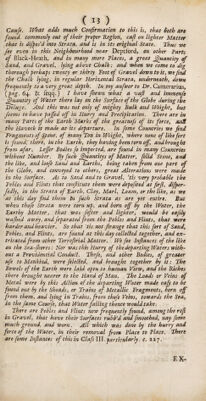 ( 13 )
Cause. What adds much Confirmation to this is, that both are
found commonly out of their proper Region, cast on lighter Matter
that is dispos'd into Strata, and is in its original State. Thus we
see even in this Neighbourhood near Deptford, on either Part
of Black-Heath, and in many more Places, a great Quantity of
Sand, and Gravel, lying above Chalk: and when we came to dig
thorough perhaps twenty or thirty Foot of Gravel down to it, we find
the Chalk lying, in regular Horizontal Strata, underneath, down
frequently to a very great depth. In my answer to Dr. Camerarius,
(pag. 64, & seqq.) I have shewn what a vast and immensely
Quantity of Water there lay on the Surface of the Globe during the
Deluge. And this was not only of mighty Bulk and Weight, but
seems to have passed off in Hurry and Precipitation. There are in
many Parts of the Earth Marks of the greatness of its force, and
the Havock it made at its departure. In some Countries we find
Fragments of Stone, of many Ton in Weight, where none of like sort
is found Stone, in the Earth, they having been torn off, and brought
from afar. Lesser Bodies so imported, are found in many Countries
without Number. By such Quantity of Matter, solid Stone, and
the like, and lastly Sand and Earths, being taken from one part of
the Globe, and conveyed to others, great Alterations were made
in the Surface. As to Sand and to Gravel, 'tis very probable the
Pebles and Flints that constitute them were deposited at first, disper-
sedly, in the Strata of Earth, Clay, Marl, Loam, or the like, as we
at this day find them in such Strata as are yet entire. But
when those Strata were torn up, and born off by the Water, the
Earthy Matter, that was softer and lighter, would be easily
washed away, and separated from the Pebles and Flints, that were
harder and heavier. So that 'tis not strange that this sort of Sand,
Pebles, and Flints, are found at this day collected together, and ex-
tricated from other Terrestrial Matter. We see Instances of the like
on the Sea-shores: Nor was this Hurry of the departing Waters with-
out a Providential Conduct. These, and other Bodies, of greater
use to Mankind, were selected, and brought together by it: The
Jewels of the Earth were laid open to humane View, and the Riches
there brought nearer to the Hand of Man. The Loads or Veins of
Metal were by this Action of the departing Water made easie to be
found out by the Shoads, or Trains of Metallic Fragments, born off
from them, and lying in Trains, from those Veins, towards the Sea,
in the same Course, that Water falling thence would take.
There are Pebles and Flints now frequently found, among the rest
in Gravel, that have their Surfaces rubb'd and smoothed, nay some
much ground, and worn. All which was done by the hurry and
force of the Water, in their removal from Place to Place. There
are some Instances of this in Class III. particularly. c. 227.
EX-